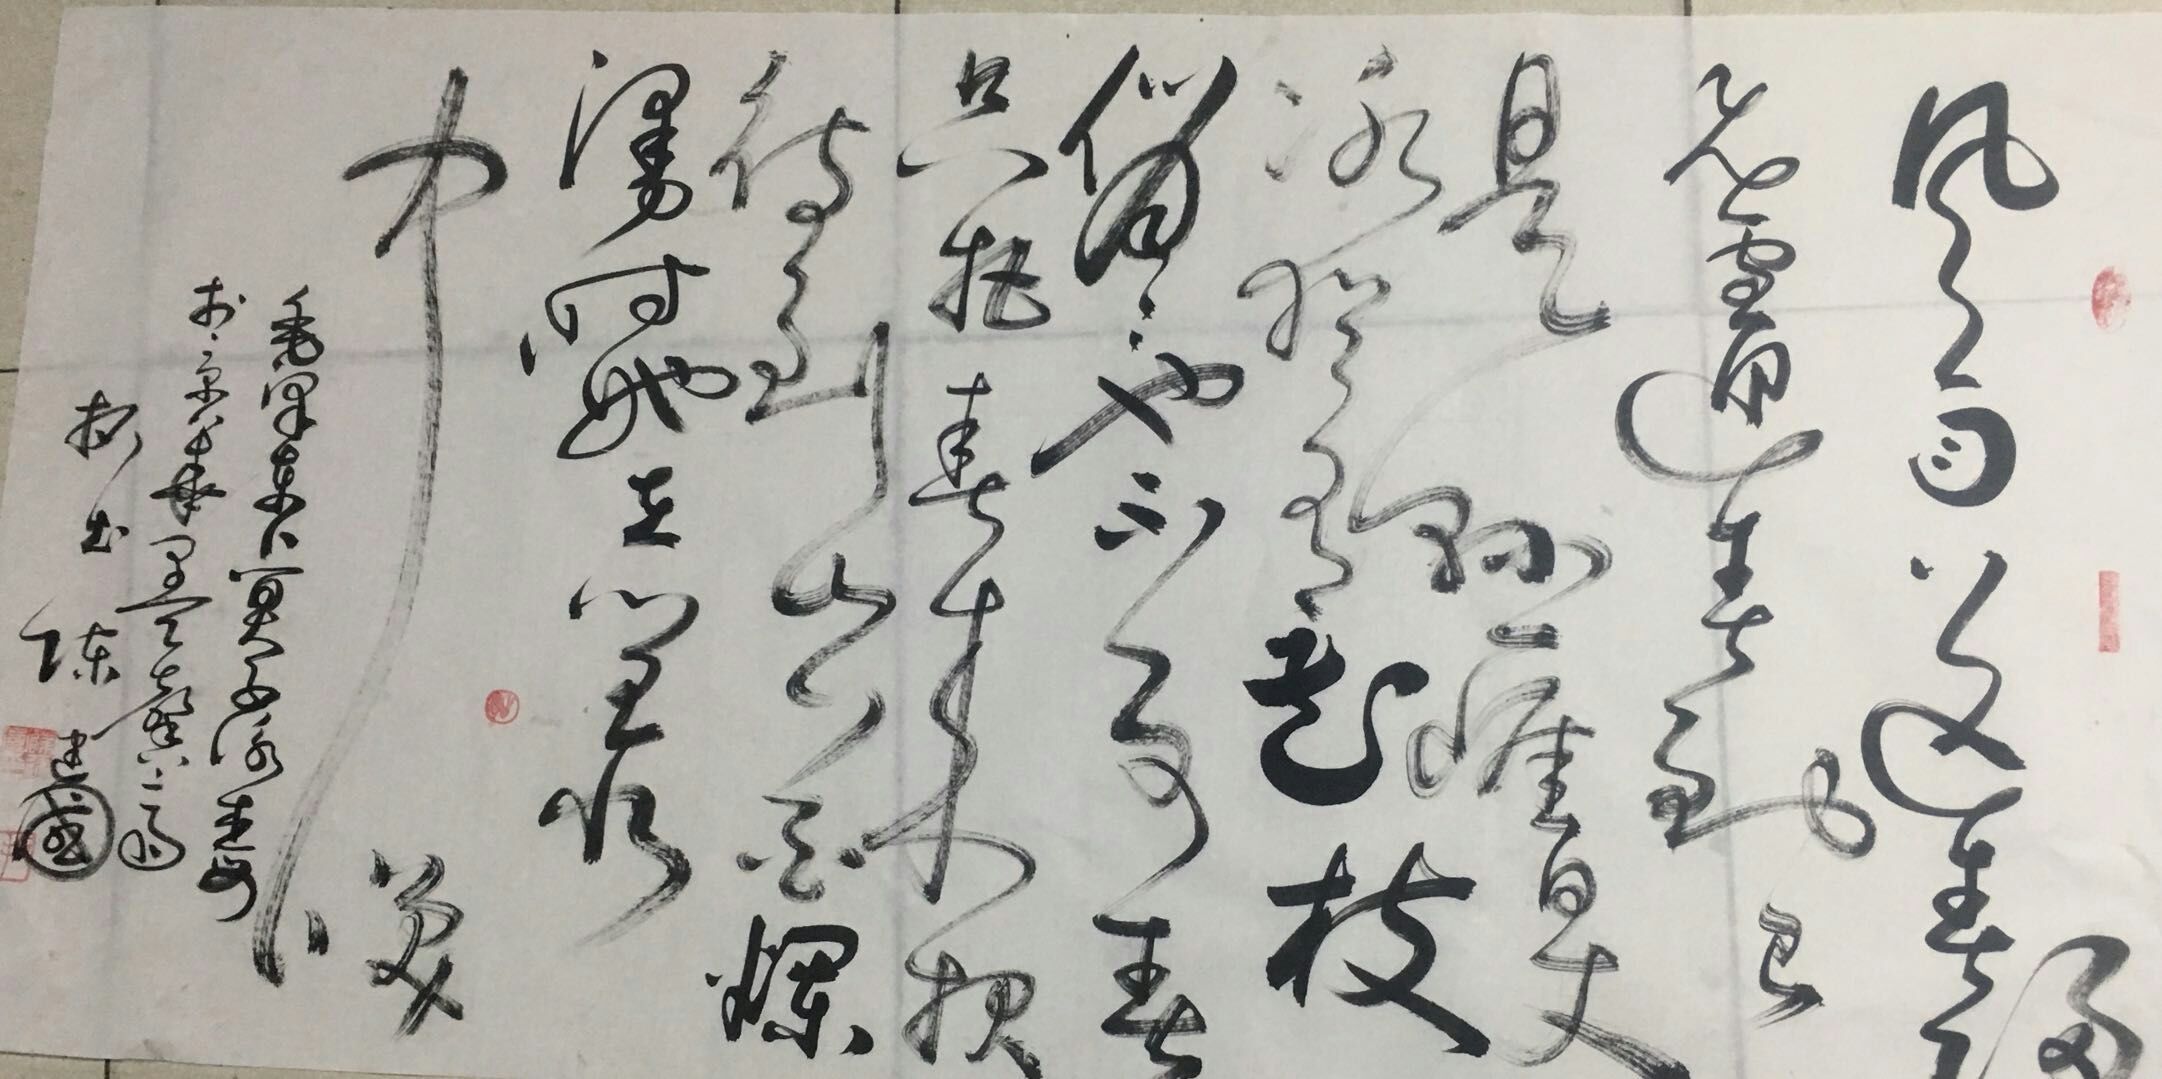 风雨送春归
飞雪迎春到已
是悬崖百丈
冰犹有花枝
俏俏也不争春
只把春来报
待到山花烂
漫时她在丛
中笑
毛泽东卜算子咏梅
於京华
陈建國